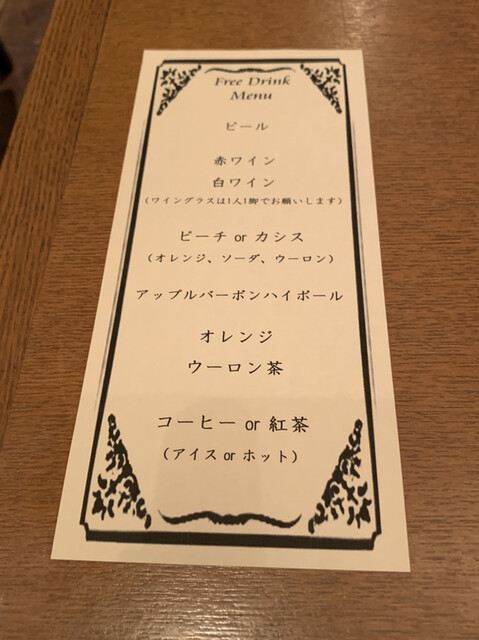 Free Drink
Menu
ビール
赤ワイン
白ワイン
（ワイングラスは1人1脚でお願いします）
ピーチ or カシス
（オレンジ、ソーダ、ウーロン）
アップルバーボンハイボール
オレンジ
ウーロン茶
コーヒー or 紅茶
（アイス or ホット）